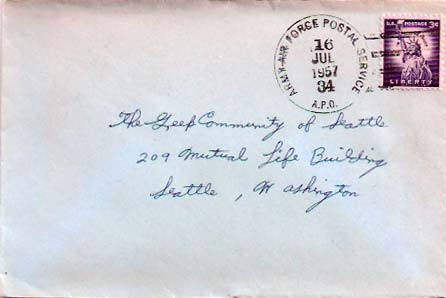 ARMY-AIR FORCE POSTAL SERVICE
16
JUL
1957
34
A.P.O.
U.S. POSTAGE 3¢
LIBERTY
The Greek Community of Seattle
209 Mutual Life Building
Seattle, Washington